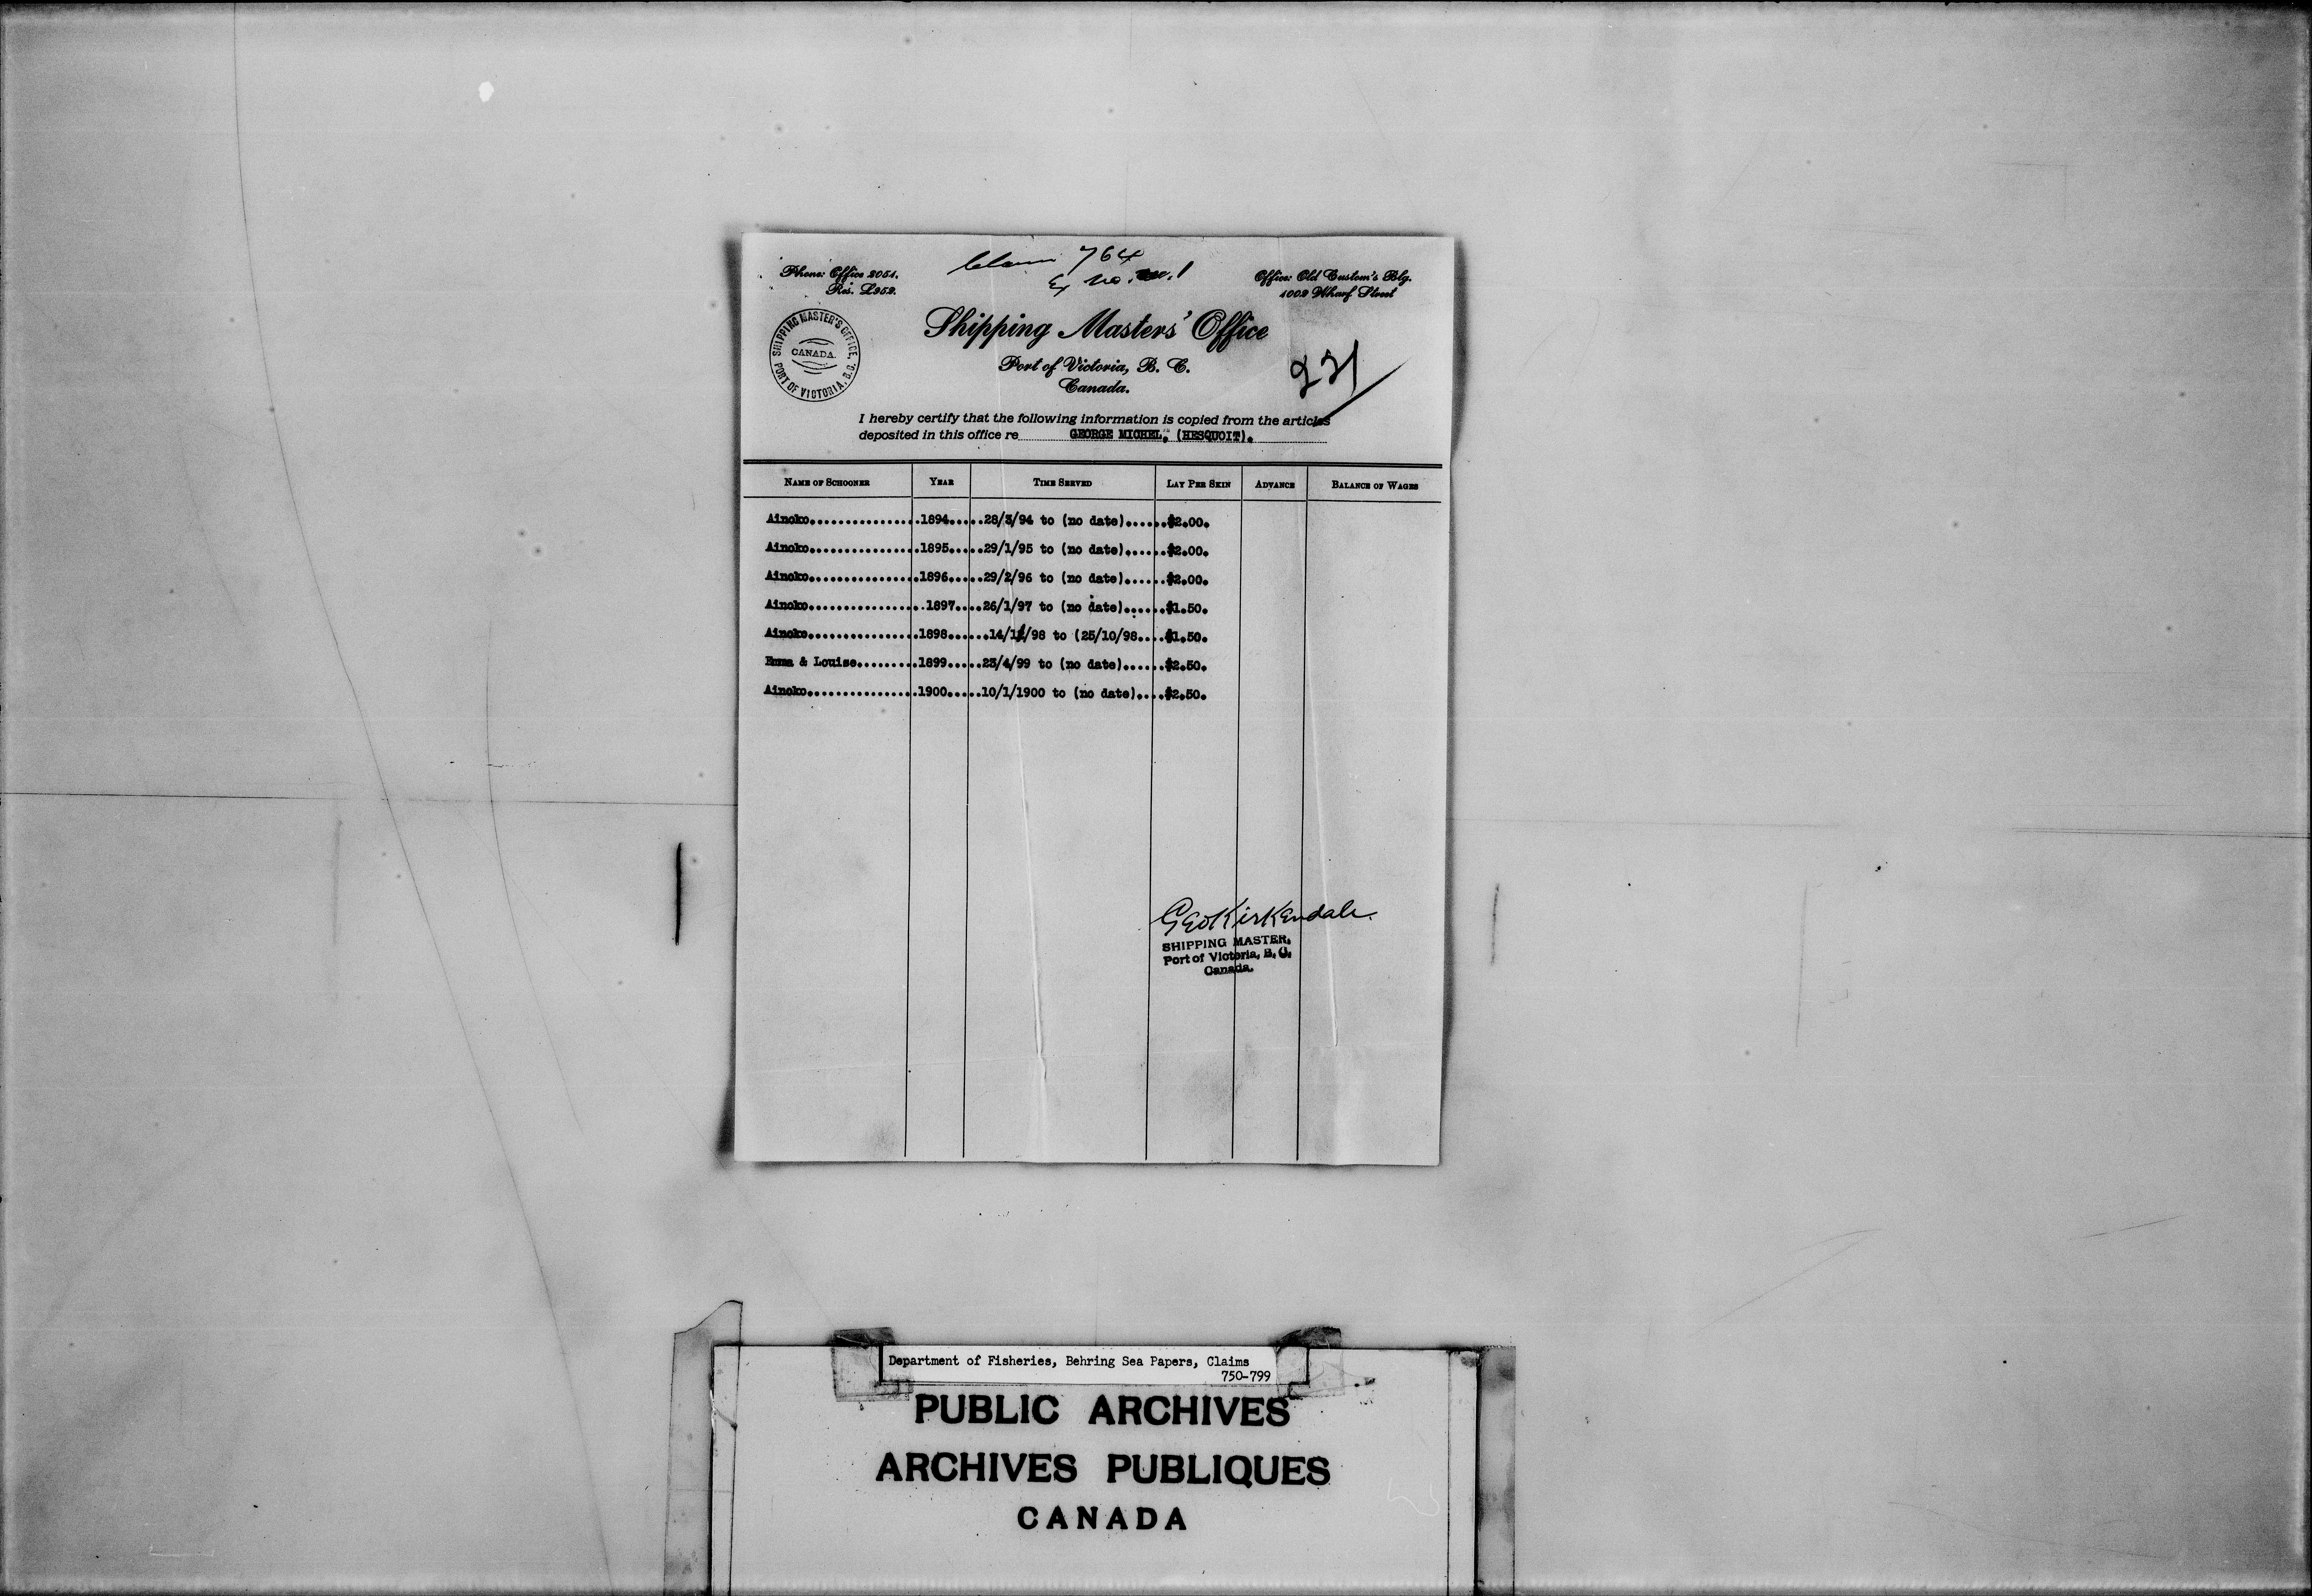 Claim 764
Ex no. 1
Phone: Office 2051.
Res. L959.
Office: Old Custom's Blg.
1002 Wharf Street
SHIPPING MASTER'S OFFICE,
CANADA.
PORT OF VICTORIA, B.C.
Shipping Masters' Office
Port of Victoria, B. C.
Canada.
I hereby certify that the following information is copied from the articles
deposited in this office re GEORGE MICHEL, (HESQUOIT).
NAME OF SCHOONER YEAR TIME SERVED LAY PER SKIN ADVANCE BALANCE OF WAGES
Ainoko................1894.....28/3/94 to (no date)......$2.00.
Ainoko................1895.....29/1/95 to (no date)......$2.00.
Ainoko................1896.....29/2/96 to (no date)......$2.00.
Ainoko................1897....26/1/97 to (no date)......$1.50.
Ainoko................1898......14/1/98 to (25/10/98....$1.50.
Emma & Louise.........1899.....23/4/99 to (no date)......$2.50.
Ainoko................1900.....10/1/1900 to (no date)....$2.50.
Geo Kirkendale.
SHIPPING MASTER,
Port of Victoria, B. C.
Canada.
Department of Fisheries, Behring Sea Papers, Claims
750-799
PUBLIC ARCHIVES
ARCHIVES PUBLIQUES
CANADA